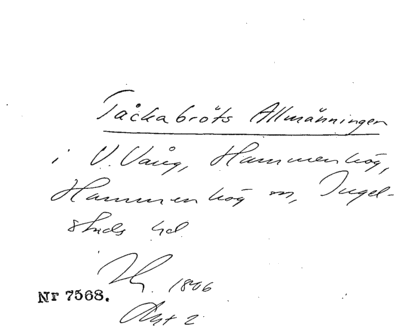 Tåckabröts Allmänningen
i V. Vång, Hammenhög,
Hammenhög sn, Ingel-
stads hd
1806
Nr 7568.
Akt 2